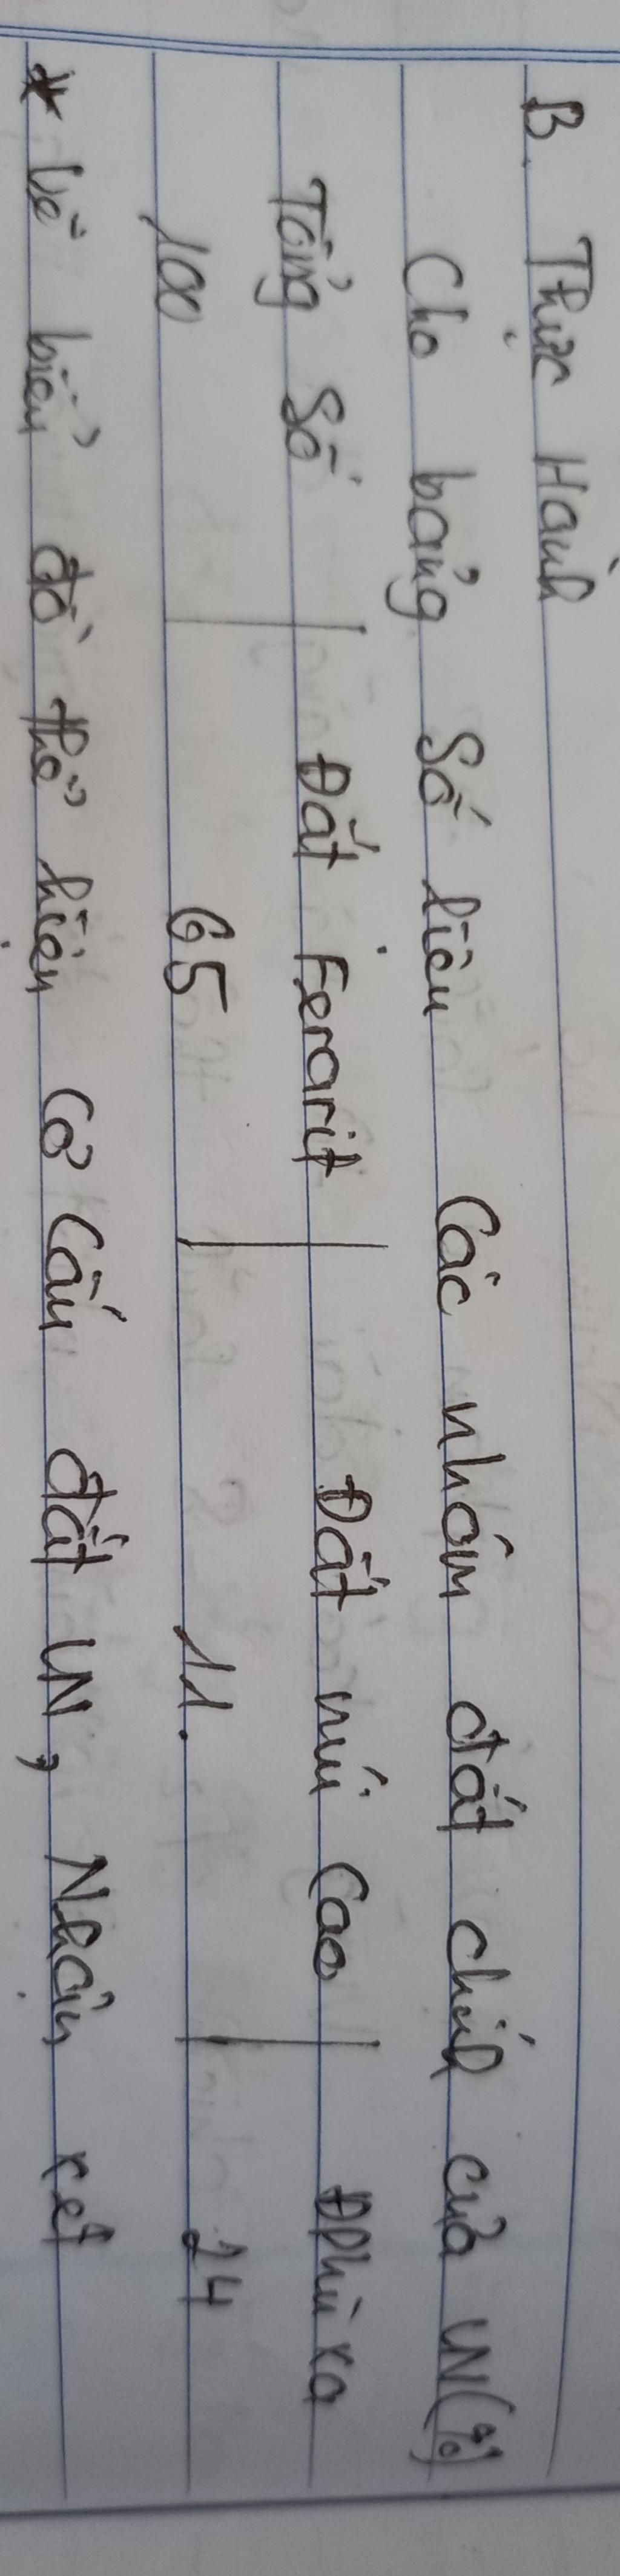 B. Thực Hành
Cho bảng Số liệu Các nhóm đất chính của VN (%)
Tổng Số Đất Ferarit Đất núi Cao Đphù xa
100 65 11. 24
* Vẽ biểu đồ thể hiện Cơ Cấu đất VN, Nhận xét